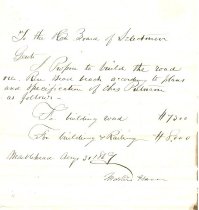 To the Hon Board of Selectmen
Gents
I Propose to build the road
near River Head beach according to plans
and specification of Chas
as follows.
For building road $7300
For building & Railing $8000
Marblehead Aug 30 1869